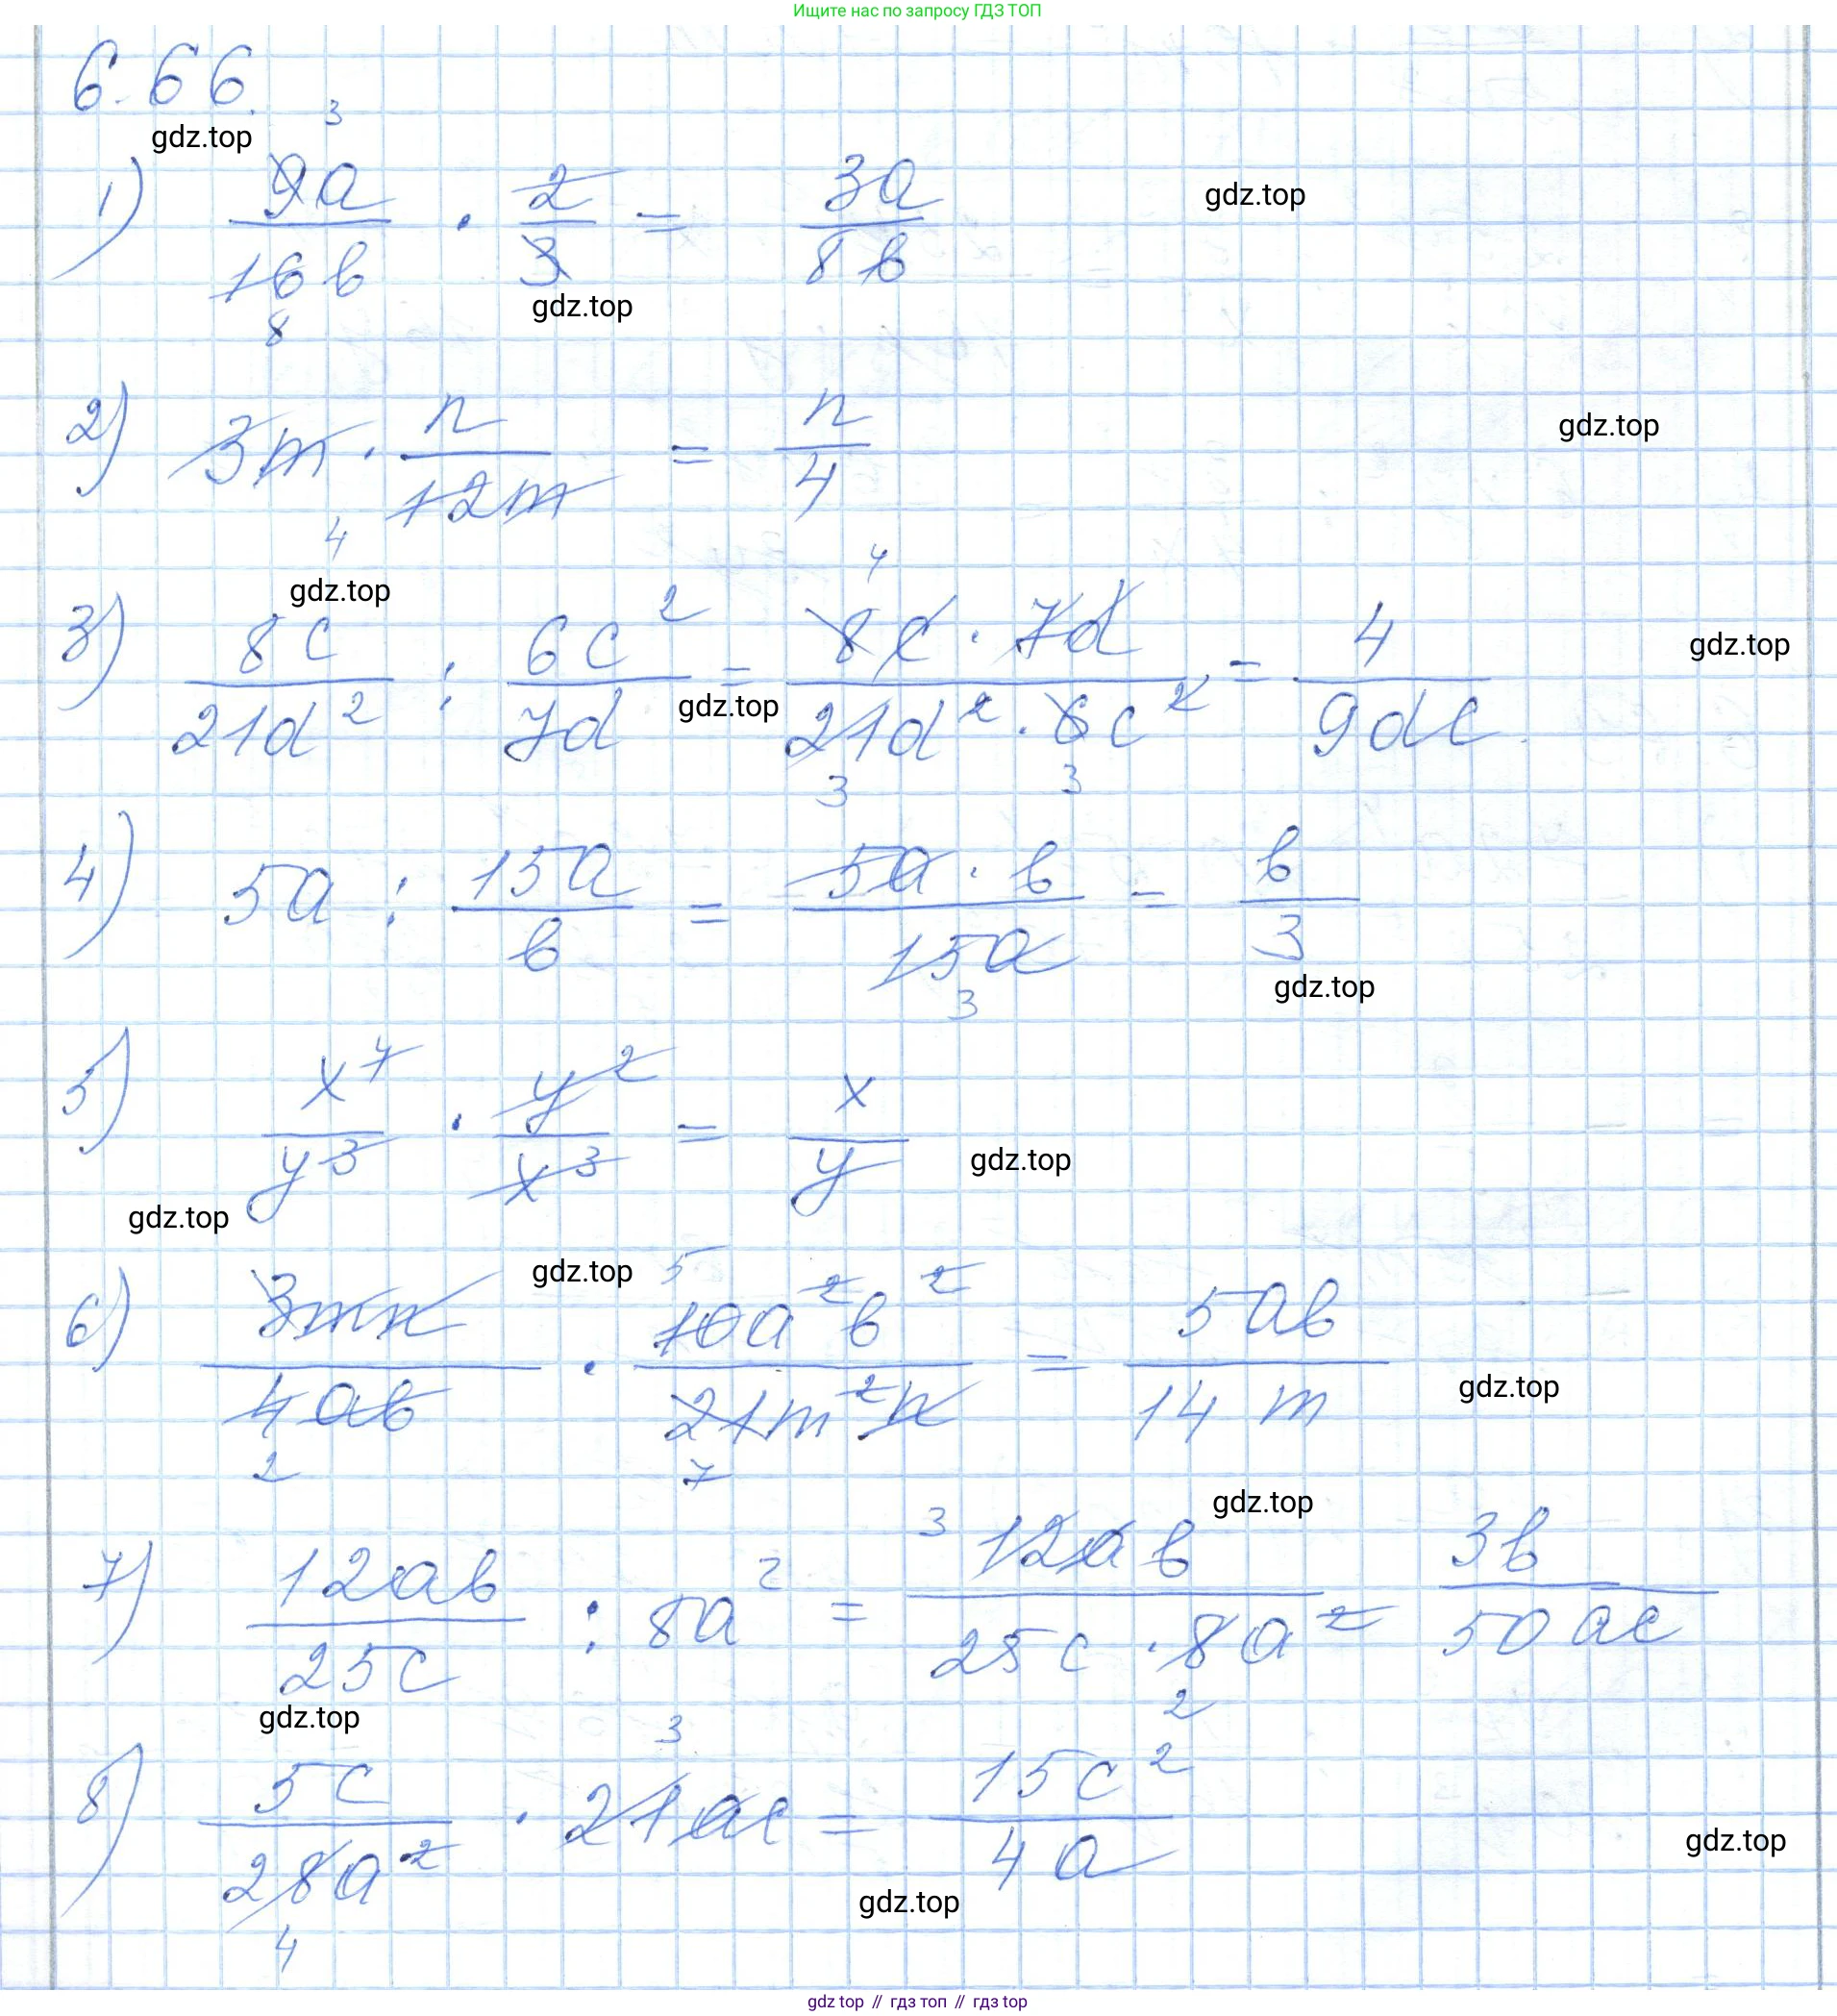 Ищите нас по запросу ГДЗ ТОП
6.66.
gdz.top
1) 9a/16b · 2/3 = 3a/8b
3
8
gdz.top
gdz.top
2) 3m · n/12m = n/4
4
gdz.top
gdz.top
3) 8c/21d² : 6c²/7d = 8c · 7d/21d² · 6c² = 4/9dc
4
3 3
gdz.top
gdz.top
4) 5a : 15a/b = 5a · b/15a = b/3
3
gdz.top
5) x⁴/y³ · y²/x³ = x/y
gdz.top
gdz.top
gdz.top
6) 3mn/4ab · 10a²b²/21m²n = 5ab/14m
5
2 7
gdz.top
gdz.top
7) 12ab/25c : 8a² = 12ab/25c · 8a² = 3b/50ac
3
2
gdz.top
8) 5c/28a² · 21ac = 15c²/4a
3
4
gdz.top
gdz.top
gdz.top // гдз топ // гдз top